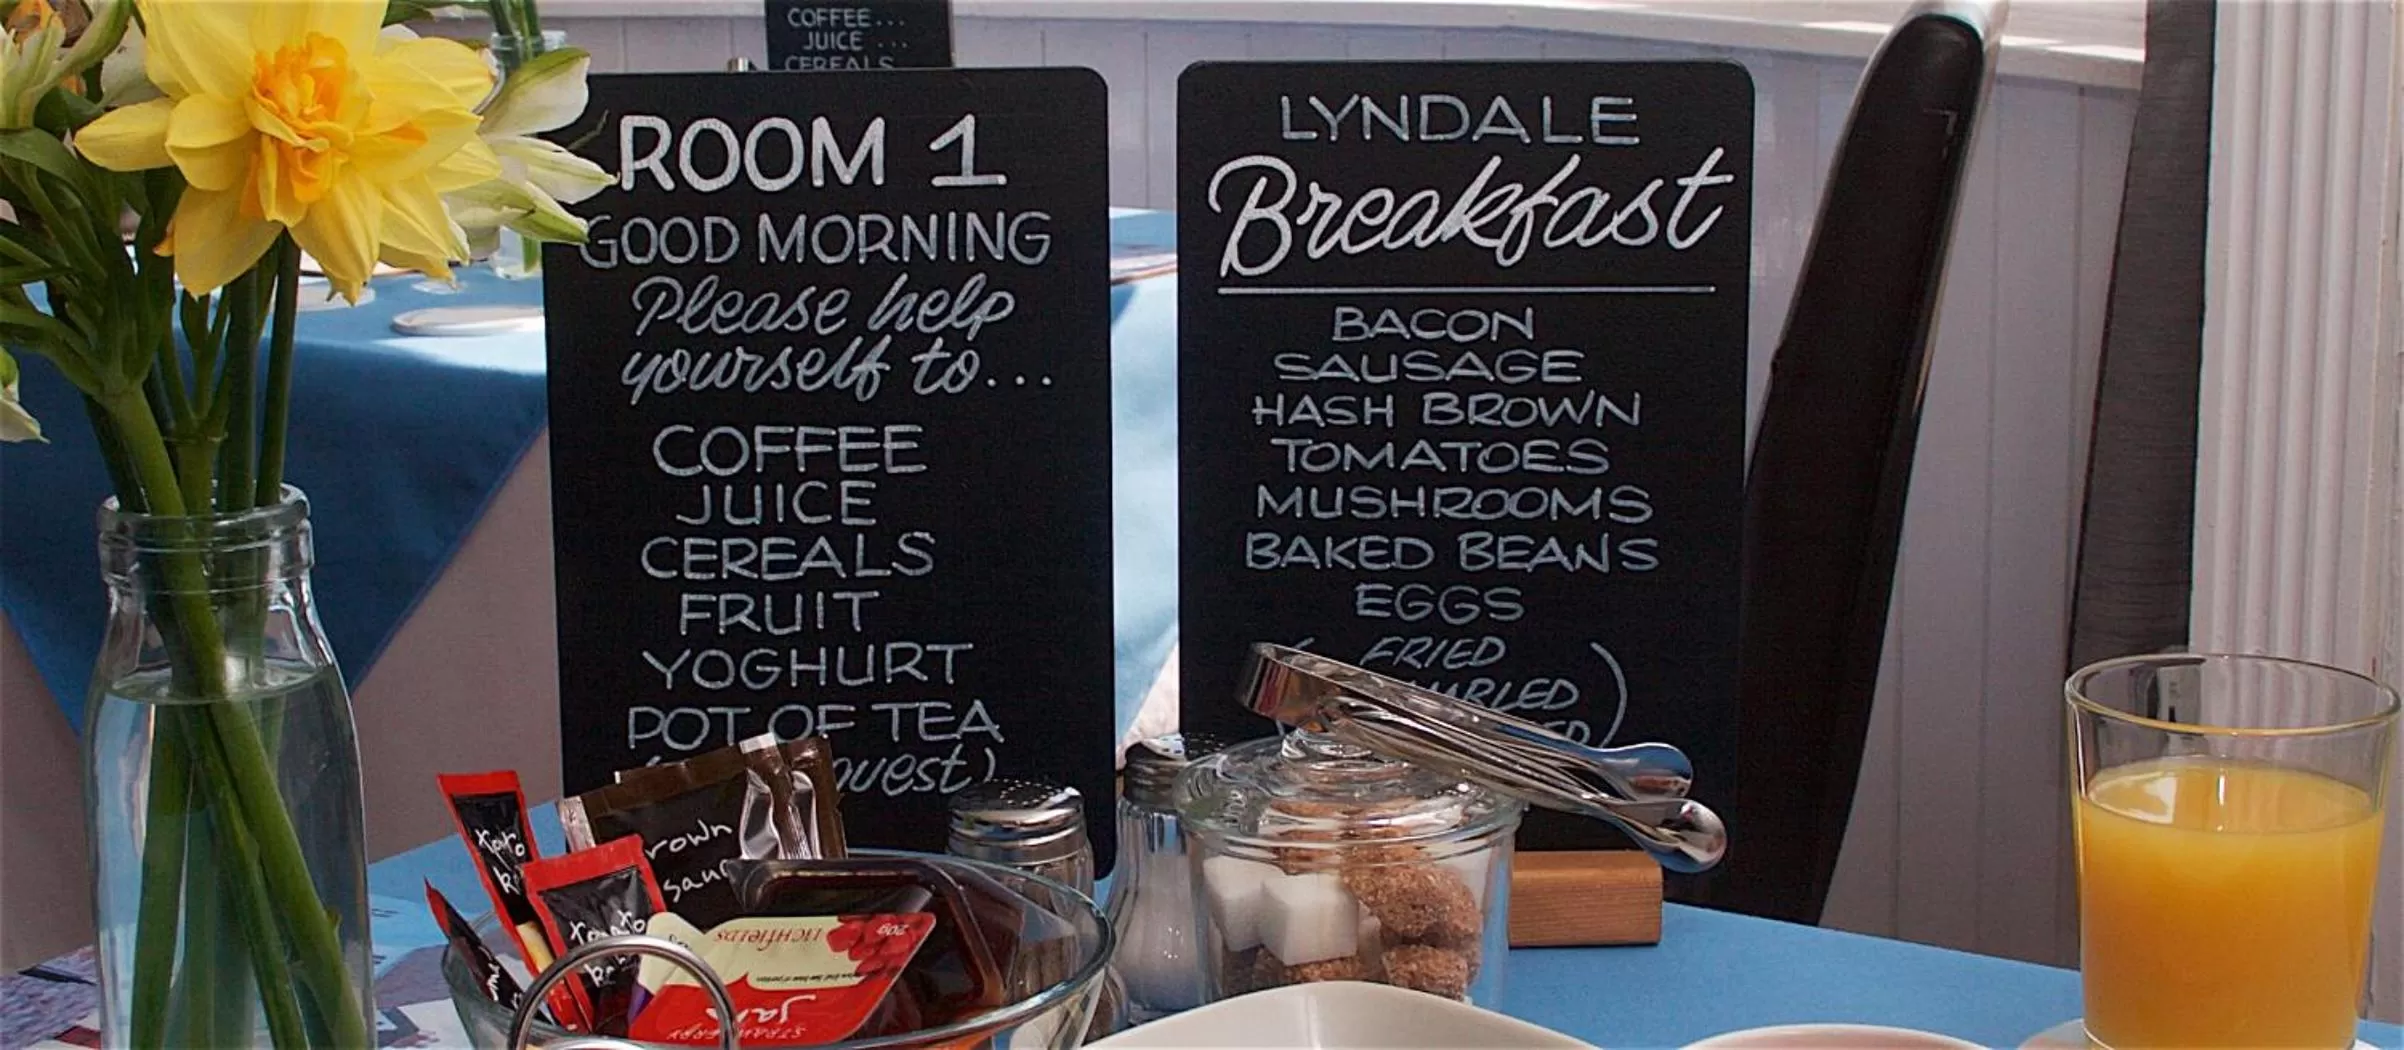 COFFEE...
JUICE ...
CEREALS
ROOM 1
GOOD MORNING
Please help
yourself to...
COFFEE
JUICE
CEREALS
FRUIT
YOGHURT
POT OF TEA
LYNDALE
Breakfast
BACON
SAUSAGE
HASH BROWN
TOMATOES
MUSHROOMS
BAKED BEANS
EGGS
( FRIED
)
LICHFIELDS
20g
STRAWBERRY
JAM